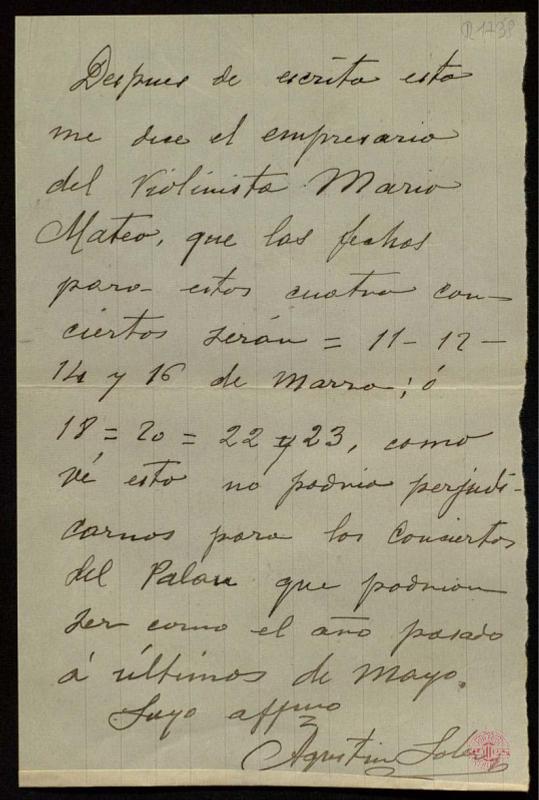 R 1738
Despues de escrita esta
me dice el empresario
del Violinista Mario
Mateo, que las fechas
para estos cuatro con-
ciertos serán = 11 - 12 -
14 y 16 de Marzo; ó
18 = 20 = 22 y 23, como
vé esto no podria perjudi-
carnos para los Conciertos
del Palau que podrian
ser como el año pasado
á últimos de Mayo.
Suyo affmo
Agustin